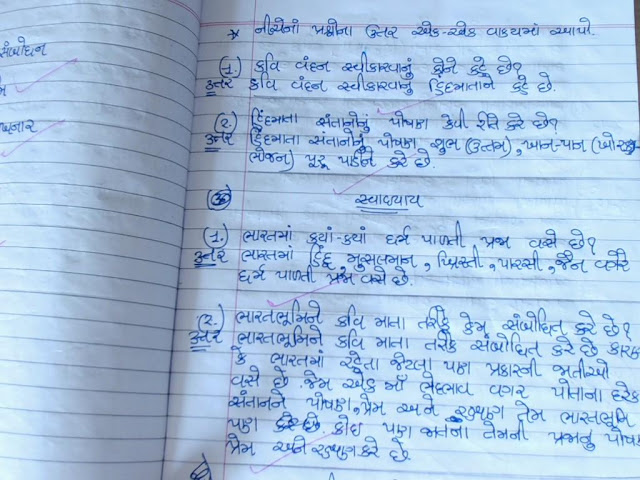 સંબોધન
* નીચેનાં પ્રશ્નોના ઉત્તર એક-એક વાક્યમાં આપો.
(1.) કવિ વંદન સ્વીકારવાનું કોને કહે છે?
ઉત્તર કવિ વંદન સ્વીકારવાનું હિંદમાતાને કહે છે.
(2.) હિંદમાતા સંતાનોનું પોષણ કેવી રીતે કરે છે?
ઉત્તર હિંદમાતા સંતાનોનું પોષણ શુભ (ઉત્તમ), ખાન-પાન
ભોજન) પૂરૂ પાડીને કરે છે.
સ્વાધ્યાય
(1.) ભારતમાં કયાં-કયાં ધર્મ પાળતી પ્રજા વસે છે?
ઉત્તર ભારતમાં હિંદુ મુસલમાન, ખ્રિસ્તી, પારસી, જૈન વગેરે
ધર્મ પાળતી પ્રજા વસે છે.
(2.) ભારતભૂમિને કવિ માતા તરીકે કેમ સંબોધિત કરે છે?
ઉત્તર ભારતભૂમિને કવિ માતા તરીકે સંબોધિત કરે છે કારણ
કે ભારતમાં રહેતા જેટલા પણ પ્રકારની જાતીઓ
વસે છે જેમ એક માઁ ભેદભાવ વગર પોતાના દરેક
સંતાનને પોષણ, પ્રેમ અને રક્ષણ તેમ ભારતભૂમિ
પણ કરે છે. કોઇ પણ જાતના તેમની પ્રજાનું પોષણ
પ્રેમ અને રક્ષણ કરે છે.